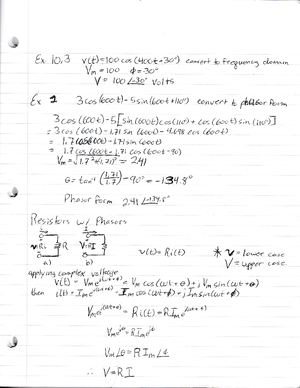 Ex 10.3 v(t)=100 cos(400t+30°) convert to frequency domain
Vm=100 ϕ=30°
V=100∠-30° Volts
Ex 1 3cos(600t)-5sin(600t+110°) convert to phasor form
3cos(600t)-5[sin(600t)cos(110°)+cos(600t)sin(110°)]
=3cos(600t)-1.71 sin(600t)-4.698 cos(600t)
=1.7cos(600t)-1.71sin(600t)
=1.7cos(600t)-1.71 cos(600t-90)
Vm=√1.7²+(1.71)² = 2.41
θ=tan⁻¹(1.71/1.7)-90°=-134.8°
Phasor form 2.41∠-134.8°
Resistors w/ Phasors
v=Ri R V=RI
v(t)=Ri(t) * v=lower case
V=upper case
a) b)
applying complex voltage
v(t)=Vme^j(ωt+θ)=Vm cos(ωt+θ)+jVm sin(ωt+θ)
then i(t)=Ime^j(ωt+ϕ)=Im cos(ωt+ϕ)+jIm sin(ωt+ϕ)
Vme^j(ωt+θ)=Ri(t)=RIme^j(ωt+ϕ)
Vme^jθ=RIme^jϕ
Vm∠θ=RIm∠ϕ
∴ V=RI